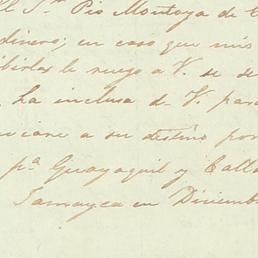 Sr. Pio Montoya de
dinero; en caso que mis
le ruego a V. se se
ha inclusa de V. para
a su destino por
pa. Guayaquil y Calla
Jamayca en Diciemb